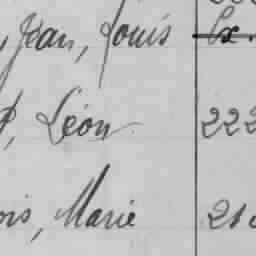 , Jean, Louis Ex.
, Léon 222
ois, Marie 21